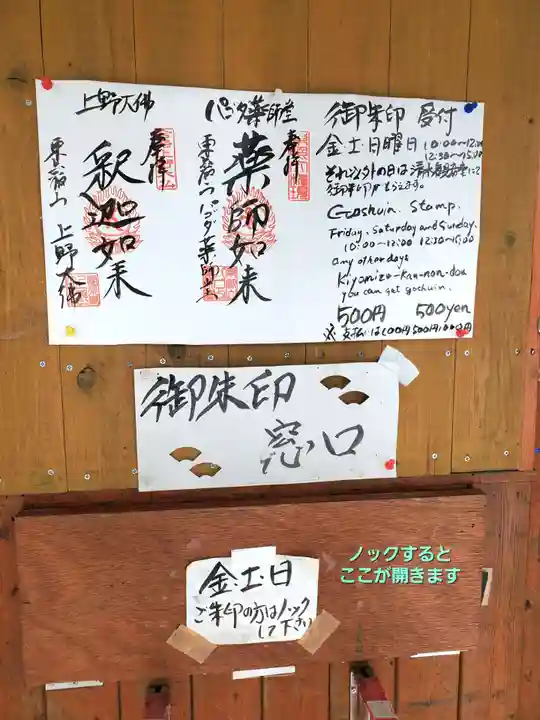 上野大佛
奉拝
釈迦如来
東叡山 上野大佛
パゴダ薬師堂
奉拝
薬師如来
東叡山パゴダ薬師堂
御朱印 受付
金・土・日曜日 10:00〜12:00
12:30〜15:00
それ以外の日は清水観音堂にて
御朱印がもらえます。
Goshuin. Stamp.
Friday, Saturday and Sunday.
10:00〜12:00 12:30〜15:00
any other days
Kiyomizu-kan-non-dou
you can get goshuin.
500円 500yen
御朱印
窓口
ノックすると
ここが開きます
金・土・日
ご朱印の方はノック
して下さい